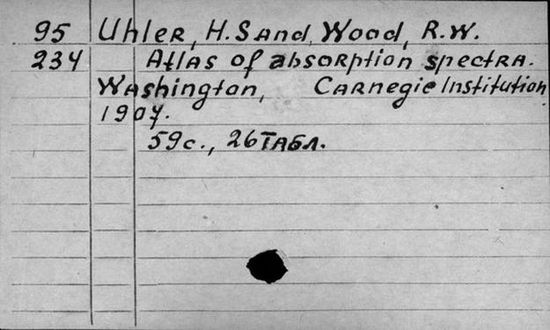 95 Uhler, H.S and Wood, R.W.
234 Atlas of absorption spectra.
Washington, Carnegie Institution
1907.
59с., 26 табл.